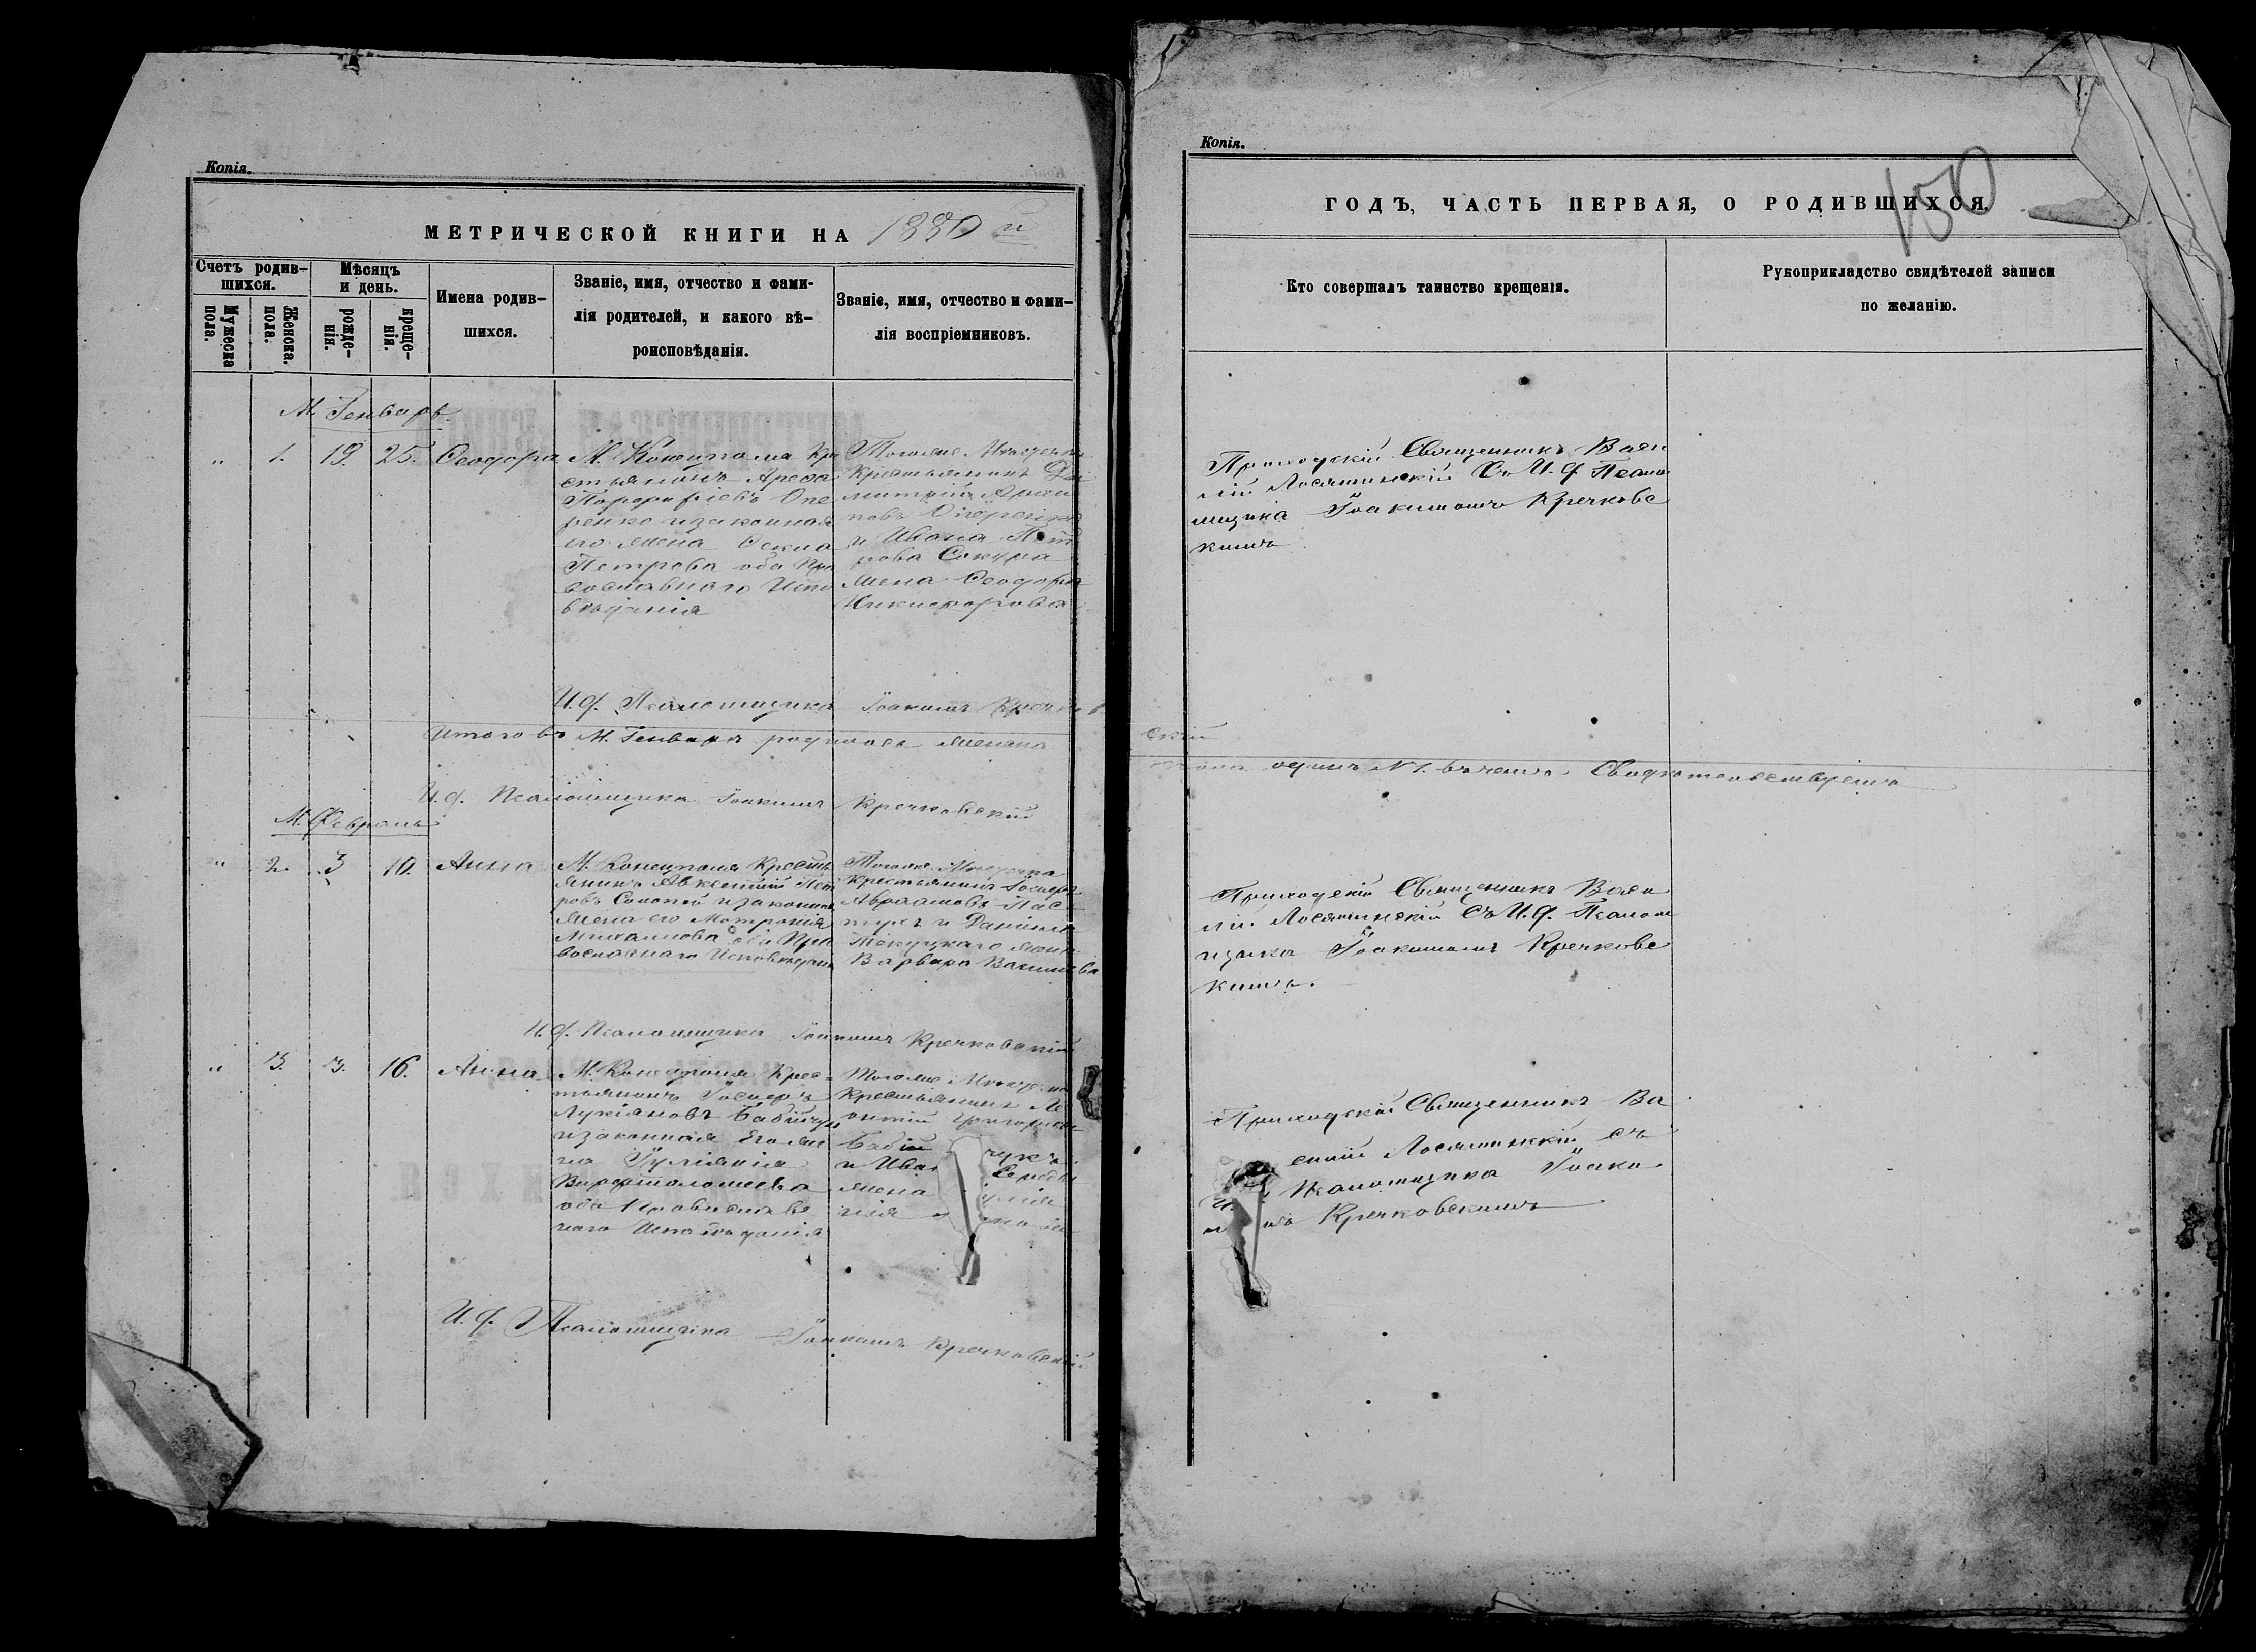 Копія.
МЕТРИЧЕСКОЙ КНИГИ НА 1880 й
Счетъ родив-
шихся.
Мужеска
пола.
Женска.
пола.
Мѣсяцъ
и день.
рожде-
нія.
креще-
нія.
Имена родив-
шихся.
Званіе, имя, отчество и фами-
лія родителей, и какого вѣ-
роисповѣданія.
Званіе, имя, отчество и фами-
лія воспріемниковъ.
М. Генварь
" 1. 19. 25. Ѳеодора
М. Конецполя Кре
стьянинъ
Порфиріевъ Опе
ренко и законная
его жена
Петрова оба Пра
вославнаго Испо
вѣданія
Тогоже Мѣстечка
Крестьянинъ Ди
митрій
и Ивана Пет
рова Сокура
жена Ѳеодора
Никифорова
И. ф. Псаломщика Іоакимъ Кречков
Итого въ М. Генварь родилось женска
И. ф. Псаломщика Іоакимъ Кречковскій
М. Февраль
" 2. 3 10. Анна
М. Конецполя Кресть
янинъ Авксентій Пет
ровъ и законная
жена его Матронія
Михаилова оба Пра
вославнаго Исповѣданія
Тогоже Мѣстечка
Крестьянинъ Іосифъ
Авраамовъ Пас
тухъ и Даніила
жена
Варвара Василіева
И. ф. Псаломщика Іоакимъ Кречковскій
" 3. 3. 16. Анна
М. Конецполя Крес-
тьянинъ Іосифъ
Лукіановъ Бабійчукъ
и законная Его же
на Іуліанія
Варфоломеева
оба Православ
наго Исповѣданія
Тогоже Мѣстечка
Крестьянинъ Ле
онтій Григорьевъ
Бабій чукъ
и Иван
жена
И. ф. Псаломщика Іоакимъ Кречковскій
Копія.
150
ГОДЪ, ЧАСТЬ ПЕРВАЯ, О РОДИВШИХСЯ.
Кто совершалъ таинство крещенія.
Рукоприкладство свидѣтелей записи
по желанію.
Приходскій Священникъ Васи
лій Лосятинскій Съ И. ф Псалом
щика Іоакимомъ Кречковс
кимъ
скій
пола одинъ №1. въ чемъ Свидѣтельствуемъ
Приходскій Священникъ Васи
лій Лосятинскій Съ И. ф. Псалом
щика Іоакимомъ Кречковс
кимъ.
Приходскій Священникъ Ва
силій Лосятинскій съ
Псаломщика Іоаки
Кречковскимъ